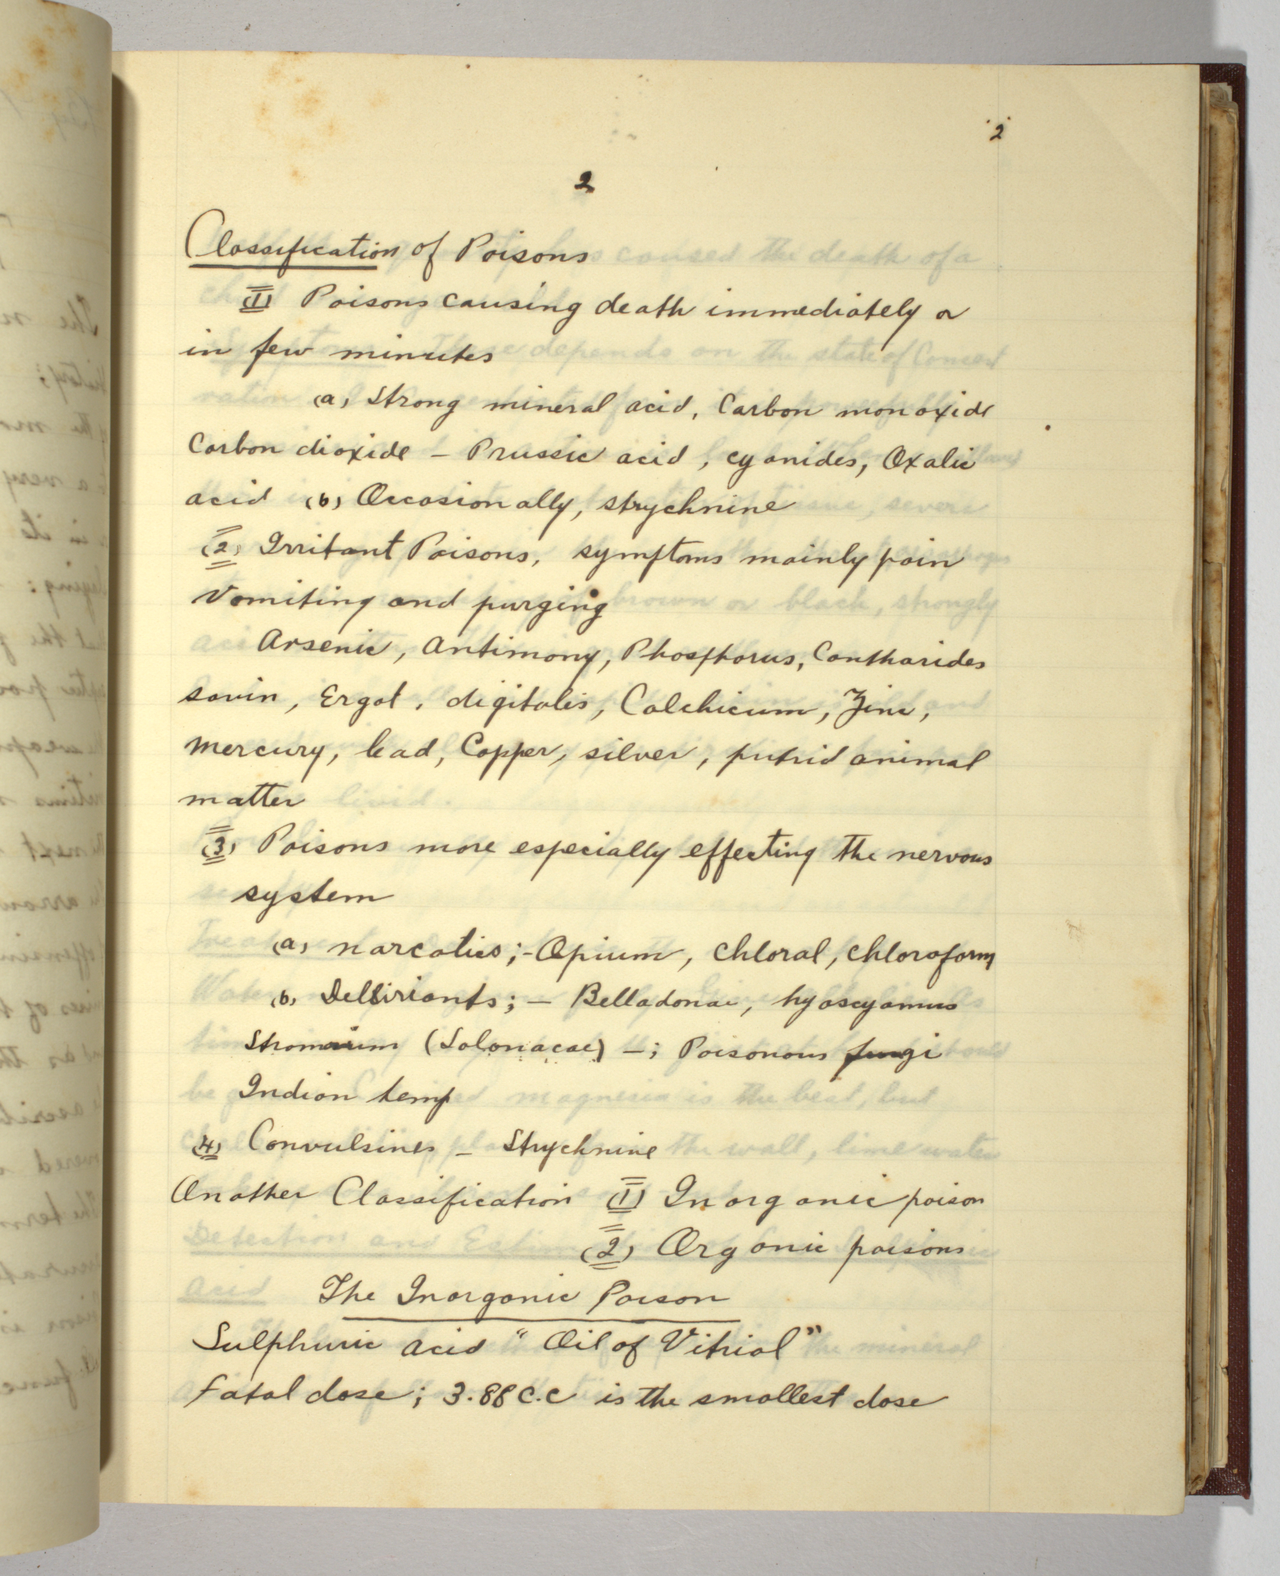 2
2
Classification of Poisons
(1) Poisons causing death immediately or
in few minutes
(a) Strong mineral acid, Carbon monoxide
Carbon dioxide – Prussic acid, cyanides, Oxalic
acid (b) Occasionally, strychnine
(2) Irritant Poisons, symptoms mainly pain
Vomiting and purging
Arsenic, Antimony, Phosphorus, Cantharides
savin, Ergot, digitalis, Colchicum, Zinc,
Mercury, lead, Copper, silver, putrid animal
matter
(3) Poisons more especially effecting the nervous
system
(a) narcotics;- Opium, chloral, chloroform
(b) Delliriants; – Belladonae, hyoscyamus
Stromonium (Solonacae) –; Poisonous fungi
Indian hemp
(4) Convulsines – Strychnine
Another Classification (1) Inorganic poison
(2) Organic poisons
The Inorganic Poison
Sulphuric acid "Oil of Vitriol"
Fatal dose; 3.88 C.C is the smallest dose